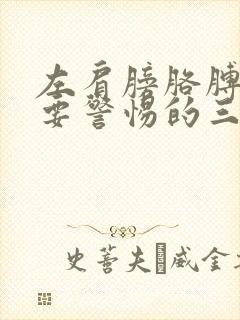 左肩膀胳膊
要警惕的三
史蒈夫 威金